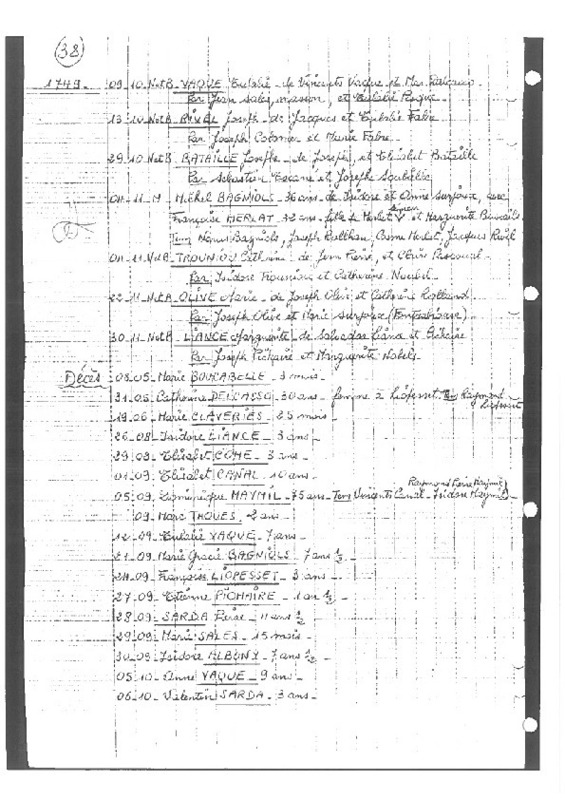 (38)
1749_ 09_10_N et B_ VAQUE Eulalie _ de Vincents Vaque et Mar.
Par Jean Sales, masson, et Eulalie
13_10_N et B_ RIVEL Joseph _ de Jacques et Eulalie Fabre
Par Joseph Colomer et Marie Fabre_
29_10_N et B_ BATAILLE Josephe _ de Joseph, et Elisabet Bataille
Par Sebastien et Josephe
01_11_M _ Michel BAGNIOLS _ 36 ans _ de Isidore et Anne Surjoux, avec
Françoise MERLAT _ 32 ans _ fille à Merlat et Marguerite
Tem Bagniols, Joseph Rollhan, Come Merlat, Jacques Rivel
01_11_N et B_ TROUNIOU Catherine _ de Jean Pierre, et
Par Isidore Trouniou et Catherine
22_11_N et B_ OLIVE Marie _ de Joseph Olive et Catherine Rolland
Par Joseph Olive et Marie Surjoux
30_11_N et B_ LIANCE Marguerite _ de Salvador Liance et
Par Joseph Pichaire et Marguerite
Décès 08_05_ Marie BOUCABELLE _ 3 mois _
31_05_ Catherine DELCASSO _ 30 ans _ femme à Liopesset _ Tem Raymond Liopesset
19_06_ Marie CLAVERIES _ 25 mois _
26_08_ Isidore LIANCE _ 3 ans _
29_08_ Elisabet COME _ 3 ans _
01_09_ Elisabet CANAL _ 10 ans _
05_09_ Dominique MAYMIL _ 75 ans _ Tem Vincents Canal _ Isidore Maymil _ Raymond Pierre Maymil
09_ Marc THQUES _ 2 ans _
12_09_ Eulalie VAQUE _ 7 ans _
21_09_ Marie Gracie BAGNIOLS _ 7 ans ½
24_09_ Françoise LIOPESSET _ 3 ans _
27_09_ Etienne PICHAIRE _ 1 an ½
28_09_ SARDA Pierre _ 11 ans ½
29_09_ Marie SALES _ 15 mois _
30_09_ Isidore ALBUNY _ 7 ans ½
05_10_ Anne VAQUE _ 9 ans _
06_10_ Valentin SARDA _ 3 ans _